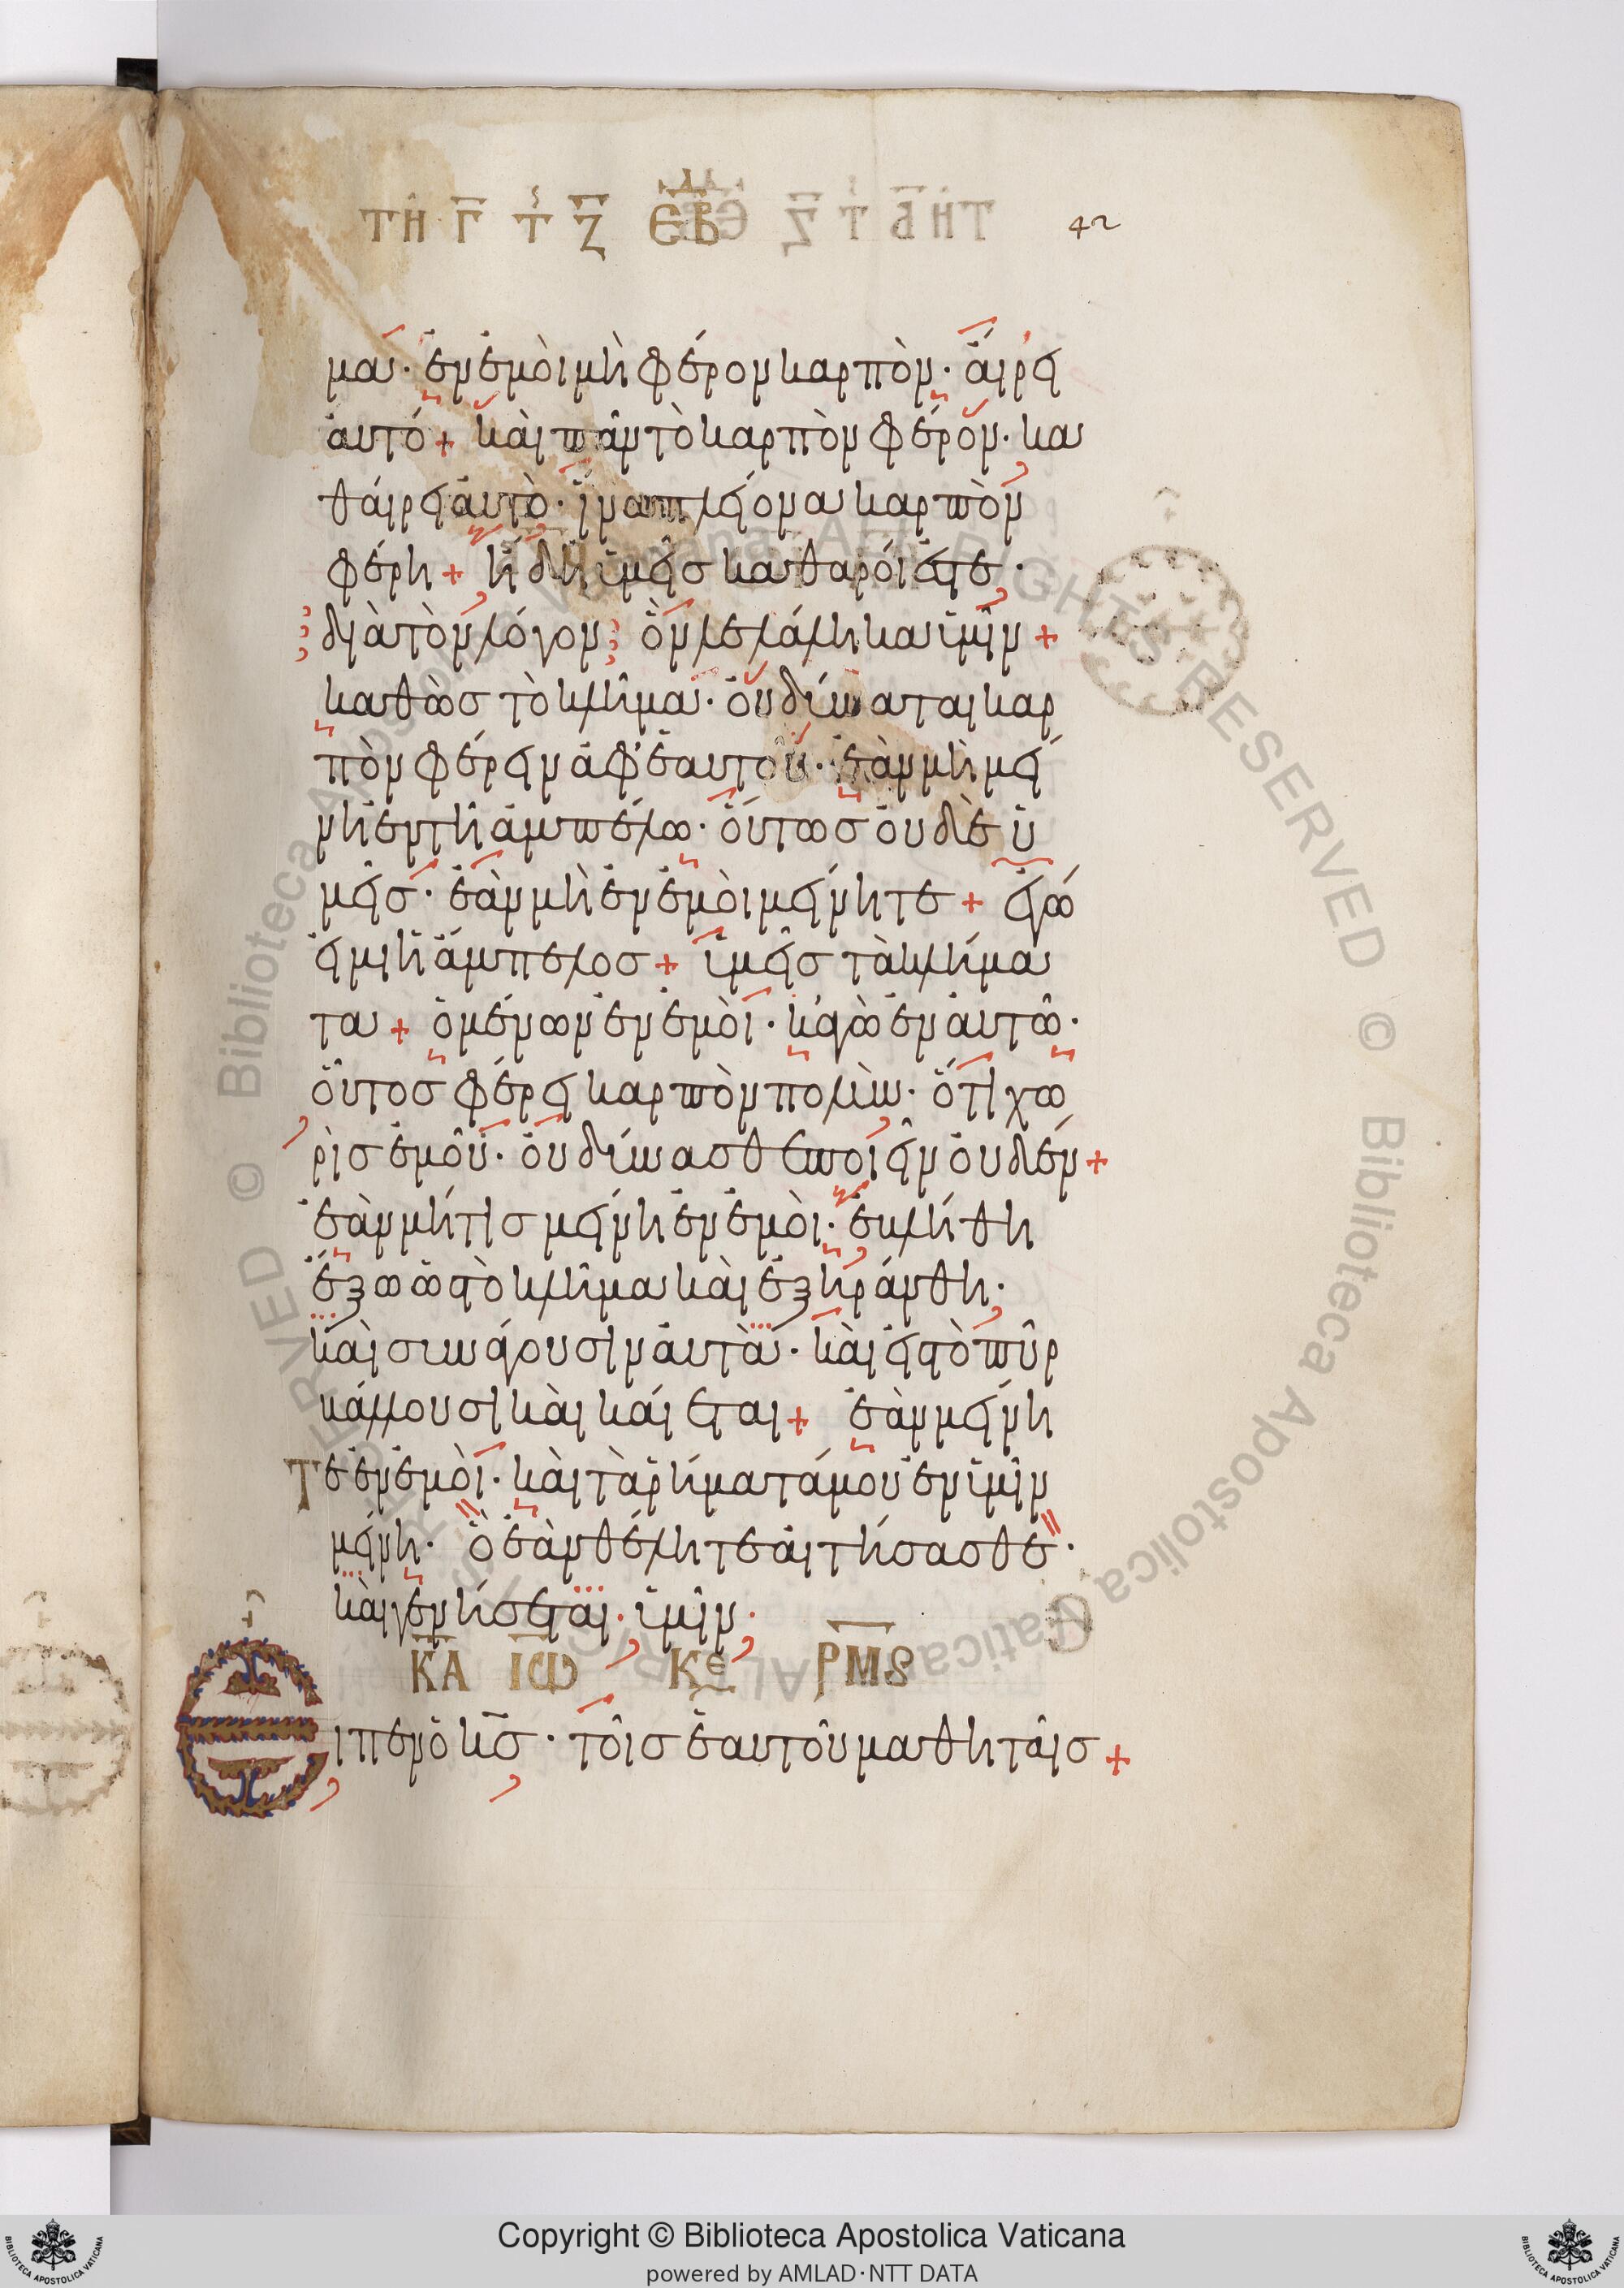 ΤΗ Γ Τ Ζ ΕΒΔ
42
μα· ἐν ἐμοὶ μὴ φέρον καρπὸν· αἴρει
αὐτό + καὶ πᾶν τὸ καρπὸν φέρον· κα
θαίρει αὐτὸ· ἵνα πλείονα καρπὸν
φέρη + ἤδη ὑμεῖς καθαροί ἐστε·
διὰ τὸν λόγον ὃν λελάληκα ὑμῖν +
καθὼς τὸ κλῆμα· οὐ δύναται καρ
πὸν φέρειν ἀφ' ἑαυτοῦ· ἐὰν μὴ μεί
νη ἐν τῆ ἀμπέλω· οὕτως οὐδὲ ὑ
μεῖς· ἐὰν μὴ ἐν ἐμοὶ μείνητε + ἐγώ
εἰμι ἡ ἄμπελος + ὑμεῖς τὰ κλήμα
τα + ὁ μένων ἐν ἐμοὶ· κἀγὼ ἐν αὐτῶ·
οὗτος φέρει καρπὸν πολὺν· ὅτι χω
ρὶς ἐμοῦ· οὐ δύνασθε ποιεῖν οὐδέν +
ἐὰν μή τις μείνη ἐν ἐμοὶ· ἐκλήθη
ἔξω ὡς τὸ κλῆμα καὶ ἐξηράνθη·
καὶ συνάγουσιν αὐτὰ· καὶ εἰς τὸ πῦρ
βάλλουσι καὶ καίεται + ἐὰν μείνη
τε ἐν ἐμοὶ· καὶ τὰ ῥήματά μου ἐν ὑμῖν
μείνη· ὃ ἐὰν θέλητε αἰτήσασθε·
καὶ γενήσεται· ὑμῖν·
ΚΑ ΙΩ ΚΕ ΡΜϚ
Εἶπεν ὁ κς· τοῖς ἑαυτοῦ μαθηταῖς +
Copyright © Biblioteca Apostolica Vaticana
powered by AMLAD·NTT DATA